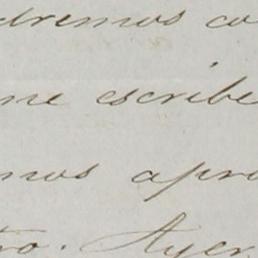 dremos co
me escribe
mos apro
tro. Ayer